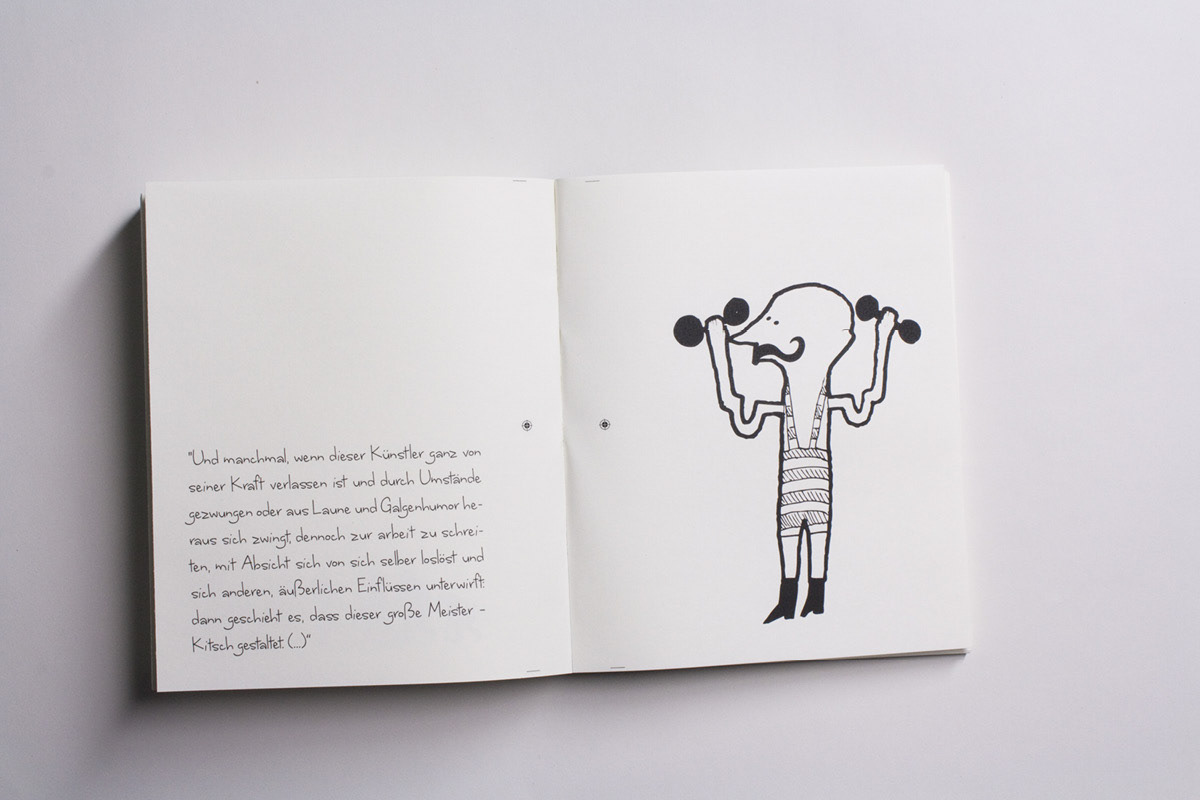 "Und manchmal, wenn dieser Künstler ganz von
seiner Kraft verlassen ist und durch Umstände
gezwungen oder aus Laune und Galgenhumor he-
raus sich zwingt, dennoch zur arbeit zu schrei-
ten, mit Absicht sich von sich selber loslöst und
sich anderen, äußerlichen Einflüssen unterwirft:
dann geschieht es, dass dieser große Meister -
Kitsch gestaltet. (...)"